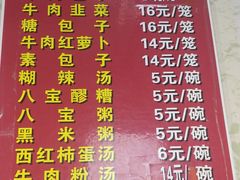 牛肉韭菜 16元/笼
糖包子 16元/笼
牛肉红萝卜 14元/笼
素包子 14元/笼
糊辣汤 5元/碗
八宝醪糟 5元/碗
八宝粥 5元/碗
黑米粥 5元/碗
西红柿蛋汤 6元/碗
牛肉粉汤 14元/碗